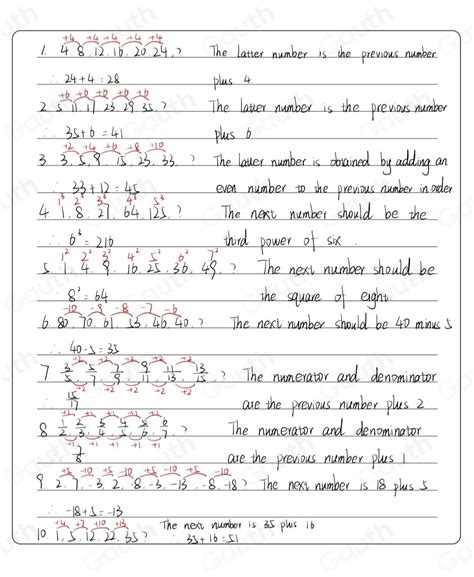 +4 +4 +4 +4 +4
1. 4. 8. 12. 16. 20. 24. ? The latter number is the previous number
∴ 24+4=28 plus 4.
+6 +6 +6 +6 +6
2. 5 11 17 23. 29 35. ? The latter number is the previous number
∴ 35+6=41 plus 6
+2 +4 +6 +8 +10
3. 3, 5, 9, 15, 23, 33. ? The latter number is obtained by adding an
∴ 33+12=45 even number to the previous number in order.
1³ 2³ 3³ 4³ 5³
4. 1, 8. 27. 64. 125. ? The next number should be the
∴ 6³=216 third power of six.
1² 2² 3² 4² 5² 6² 7²
5. 1. 4. 9. 16. 25. 36. 49. ? The next number should be
8²=64 the square of eight.
-10 -9 -8 -7 -6
6. 80. 70. 61. 53. 46. 40. ? The next number should be 40 minus 5
∴ 40-5=35
+2 +2 +2 +2 +2
7 3/5 5/7 7/9 9/11 11/13 13/15. ? The numerator and denominator
+2 +2 +2 +2 +2
∴ 15/17 are the previous number plus 2
+1 +1 +1 +1 +1
8 1/2 2/3 3/4 4/5 5/6 6/7. ? The numerator and denominator
+1 +1 +1 +1 +1
∴ 7/8 are the previous number plus 1
+5 -10 +5 -10 +5 -10 +5 -10
9. 2. 7. -3. 2. -8 -3. -13. -8. -18? The next number is 18 plus 5
∴ -18+5=-13
+4 +7 +10 +13 The next number is 35 plus 16
10. 1, 5, 12. 22. 35? ∴ 35+16=51
Gauth